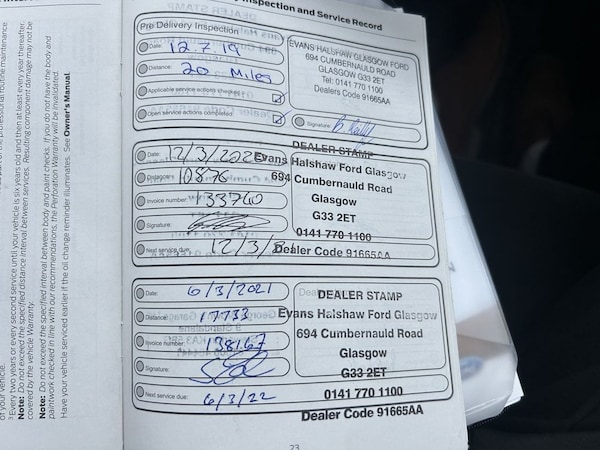 Inspection and Service Record
Pre Delivery Inspection
Date: 12.7.19
Distance: 20 Miles
Applicable service actions checked
Open service actions completed
EVANS HALSHAW GLASGOW FORD
694 CUMBERNAULD ROAD
GLASGOW G33 2ET
Tel: 0141 770 1100
Dealers Code 91665AA
Signature:
Date: 12/3/2020
Distance: 10876
Invoice number: 133760
Signature:
Next service due: 12/3/
DEALER STAMP
Evans Halshaw Ford Glasgow
694 Cumbernauld Road
Glasgow
G33 2ET
0141 770 1100
Dealer Code 91665AA
Date: 6/3/2021
Distance: 17733
Invoice number: 138167
Signature:
Next service due: 6/3/22
DEALER STAMP
Evans Halshaw Ford Glasgow
694 Cumbernauld Road
Glasgow
G33 2ET
0141 770 1100
Dealer Code 91665AA
23
of your vehicle.
Every two years or every second service until your vehicle is six years old and then at least every year thereafter.
Note: Do not exceed the specified distance interval between services. Resulting component damage may not be
covered by the vehicle Warranty.
Note: Do not exceed the specified interval between body and paint checks. If you do not have the body and
paintwork checked in line with our recommendations, the Perforation Warranty will be invalidated.
Have your vehicle serviced earlier if the oil change reminder illuminates. See Owner's Manual.